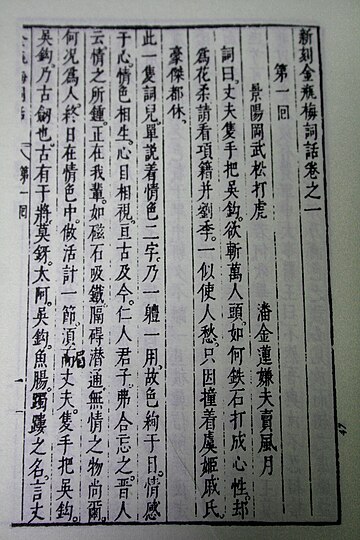 新刻金瓶梅詞話卷之一
第一回
景陽岡武松打虎　潘金蓮嫌夫賣風月
詞曰。丈夫隻手把吳鈎。欲斬萬人頭。如何鉄石打成心性。却
爲花柔。請看項籍并劉季。一似使人愁。只因撞着虞姬戚氏。
豪傑都休。
此一隻詞兒。單說着情色二字。乃一體一用。故色絢于目。情感
于心。情色相生。心目相視。亘古及今。仁人君子。弗合忘之。晉人
云。情之所鍾。正在我輩。如磁石吸鐵。隔碍潜通。無情之物尚爾。
何况爲人。終日在情色中做活計一節。須而丈夫隻手把吳鈎。
吳鈎。乃古劍也。古有干將莫鋣。太阿。吳鈎。魚腸。躅䠱之名。言丈
第一回